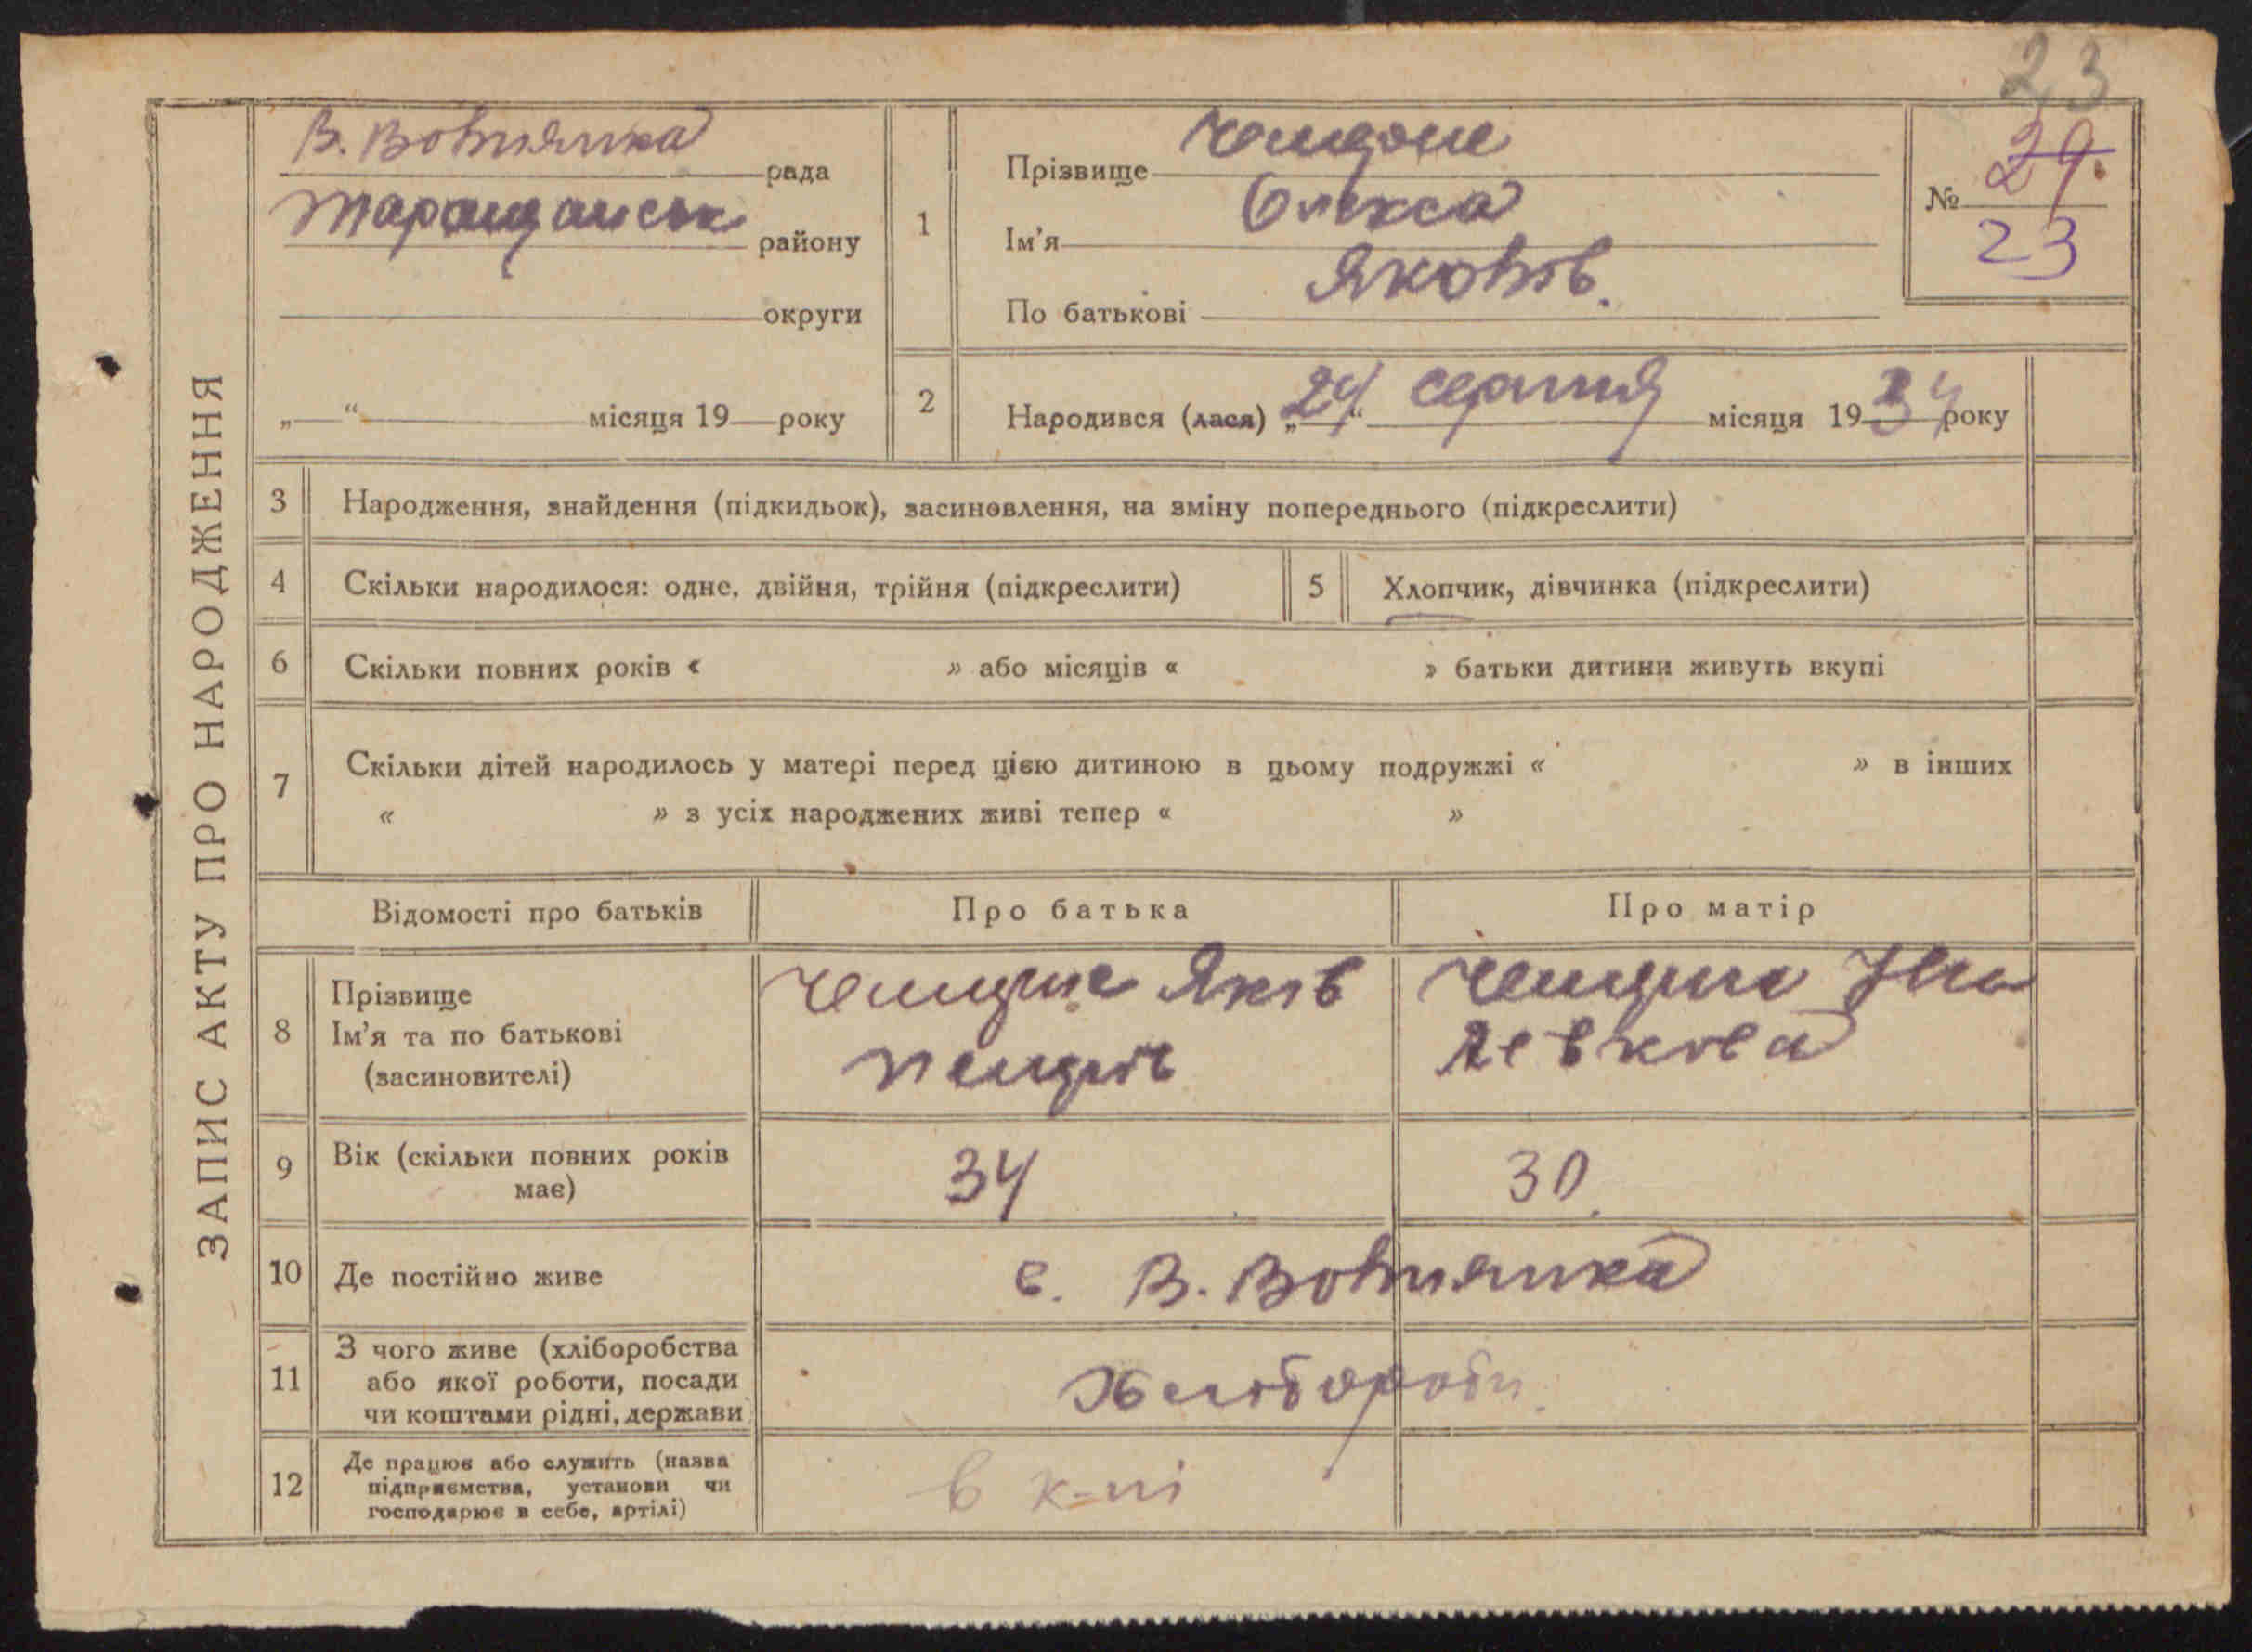 23
ЗАПИС АКТУ ПРО НАРОДЖЕННЯ
В. Вовнянка рада
Таращанськ району
округи
„ “ місяця 19 року
1
Прізвище
Ім'я Олекса
По батькові Яковів.
№ 29.
23
2
Народився (лася) „24“ серпня місяця 1934 року
3 Народження, знайдення (підкидьок), засиновлення, на зміну попереднього (підкреслити)
4 Скільки народилося: одне, двійня, трійня (підкреслити)
5 Хлопчик, дівчинка (підкреслити)
6 Скільки повних років « » або місяців « » батьки дитини живуть вкупі
7 Скільки дітей народилось у матері перед цією дитиною в цьому подружжі « » в інших
« » з усіх народжених живі тепер « »
Відомості про батьків
Про батька
Про матір
8 Прізвище
Ім'я та по батькові
(засиновителі)
Яків
Левкова
9 Вік (скільки повних років
має)
34
30.
10 Де постійно живе
с. В. Вовнянка
11 З чого живе (хліборобства
або якої роботи, посади
чи коштами рідні, держави
Хлібороби.
12 Де працює або служить (назва
підприємства, установи чи
господарює в себе, артілі)
в к-пі